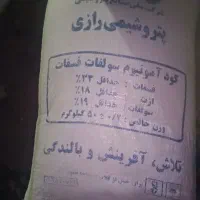 پتروشیمی رازی
کود آمونیوم سولفات فسفات
فسفات : حداقل ۲۳٪
ازت : حداقل ۱۸٪
سولفات : حداقل ۱۹٪
وزن خالص : ۰/۲ ± ۵۰ کیلوگرم
تلاش، آفرینش و بالندگی